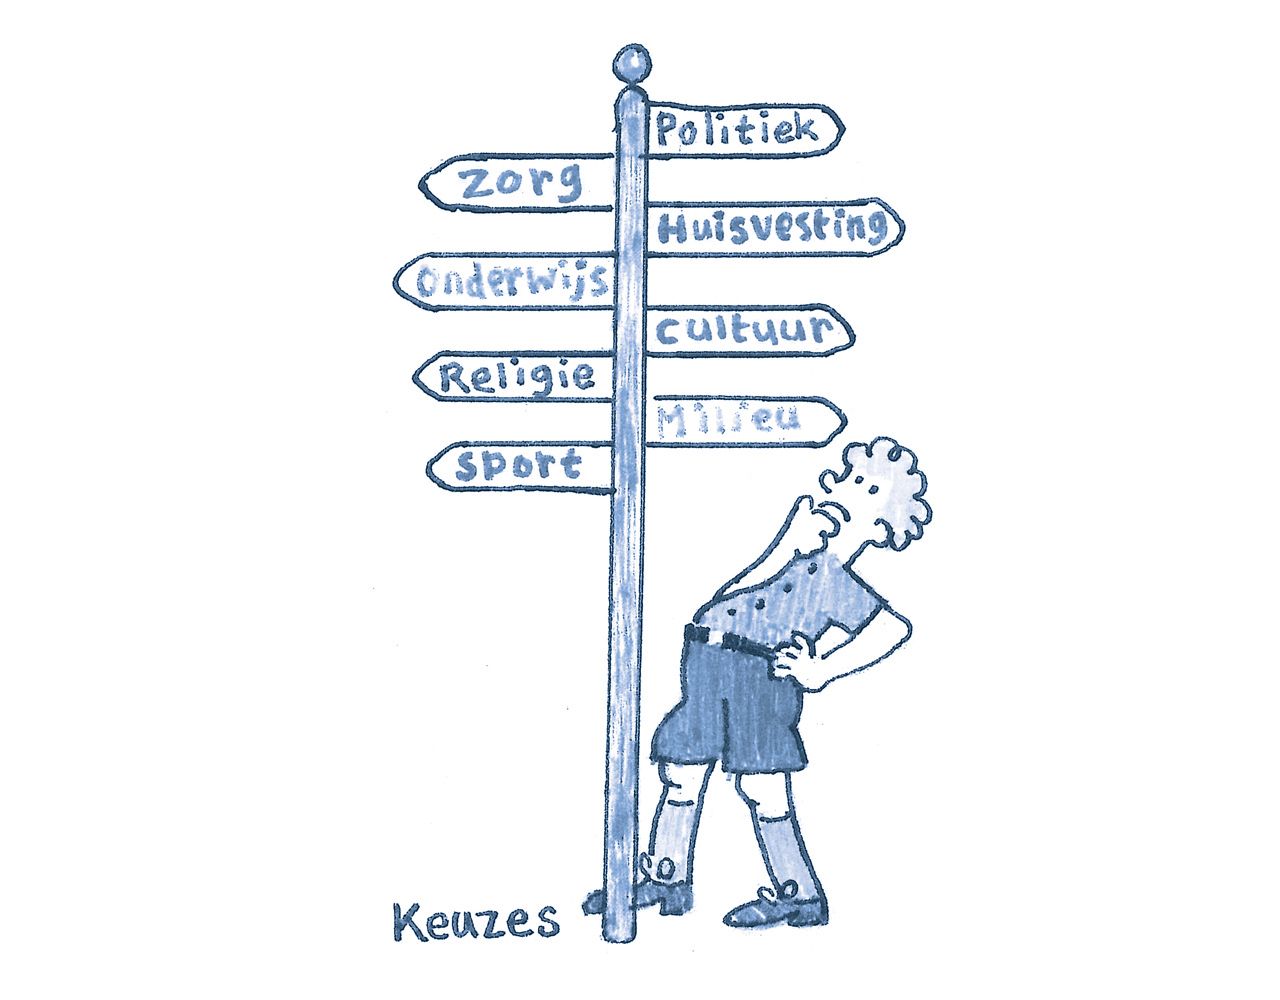 Politiek
zorg
Huisvesting
Onderwijs
cultuur
Religie
Milieu
sport
Keuzes